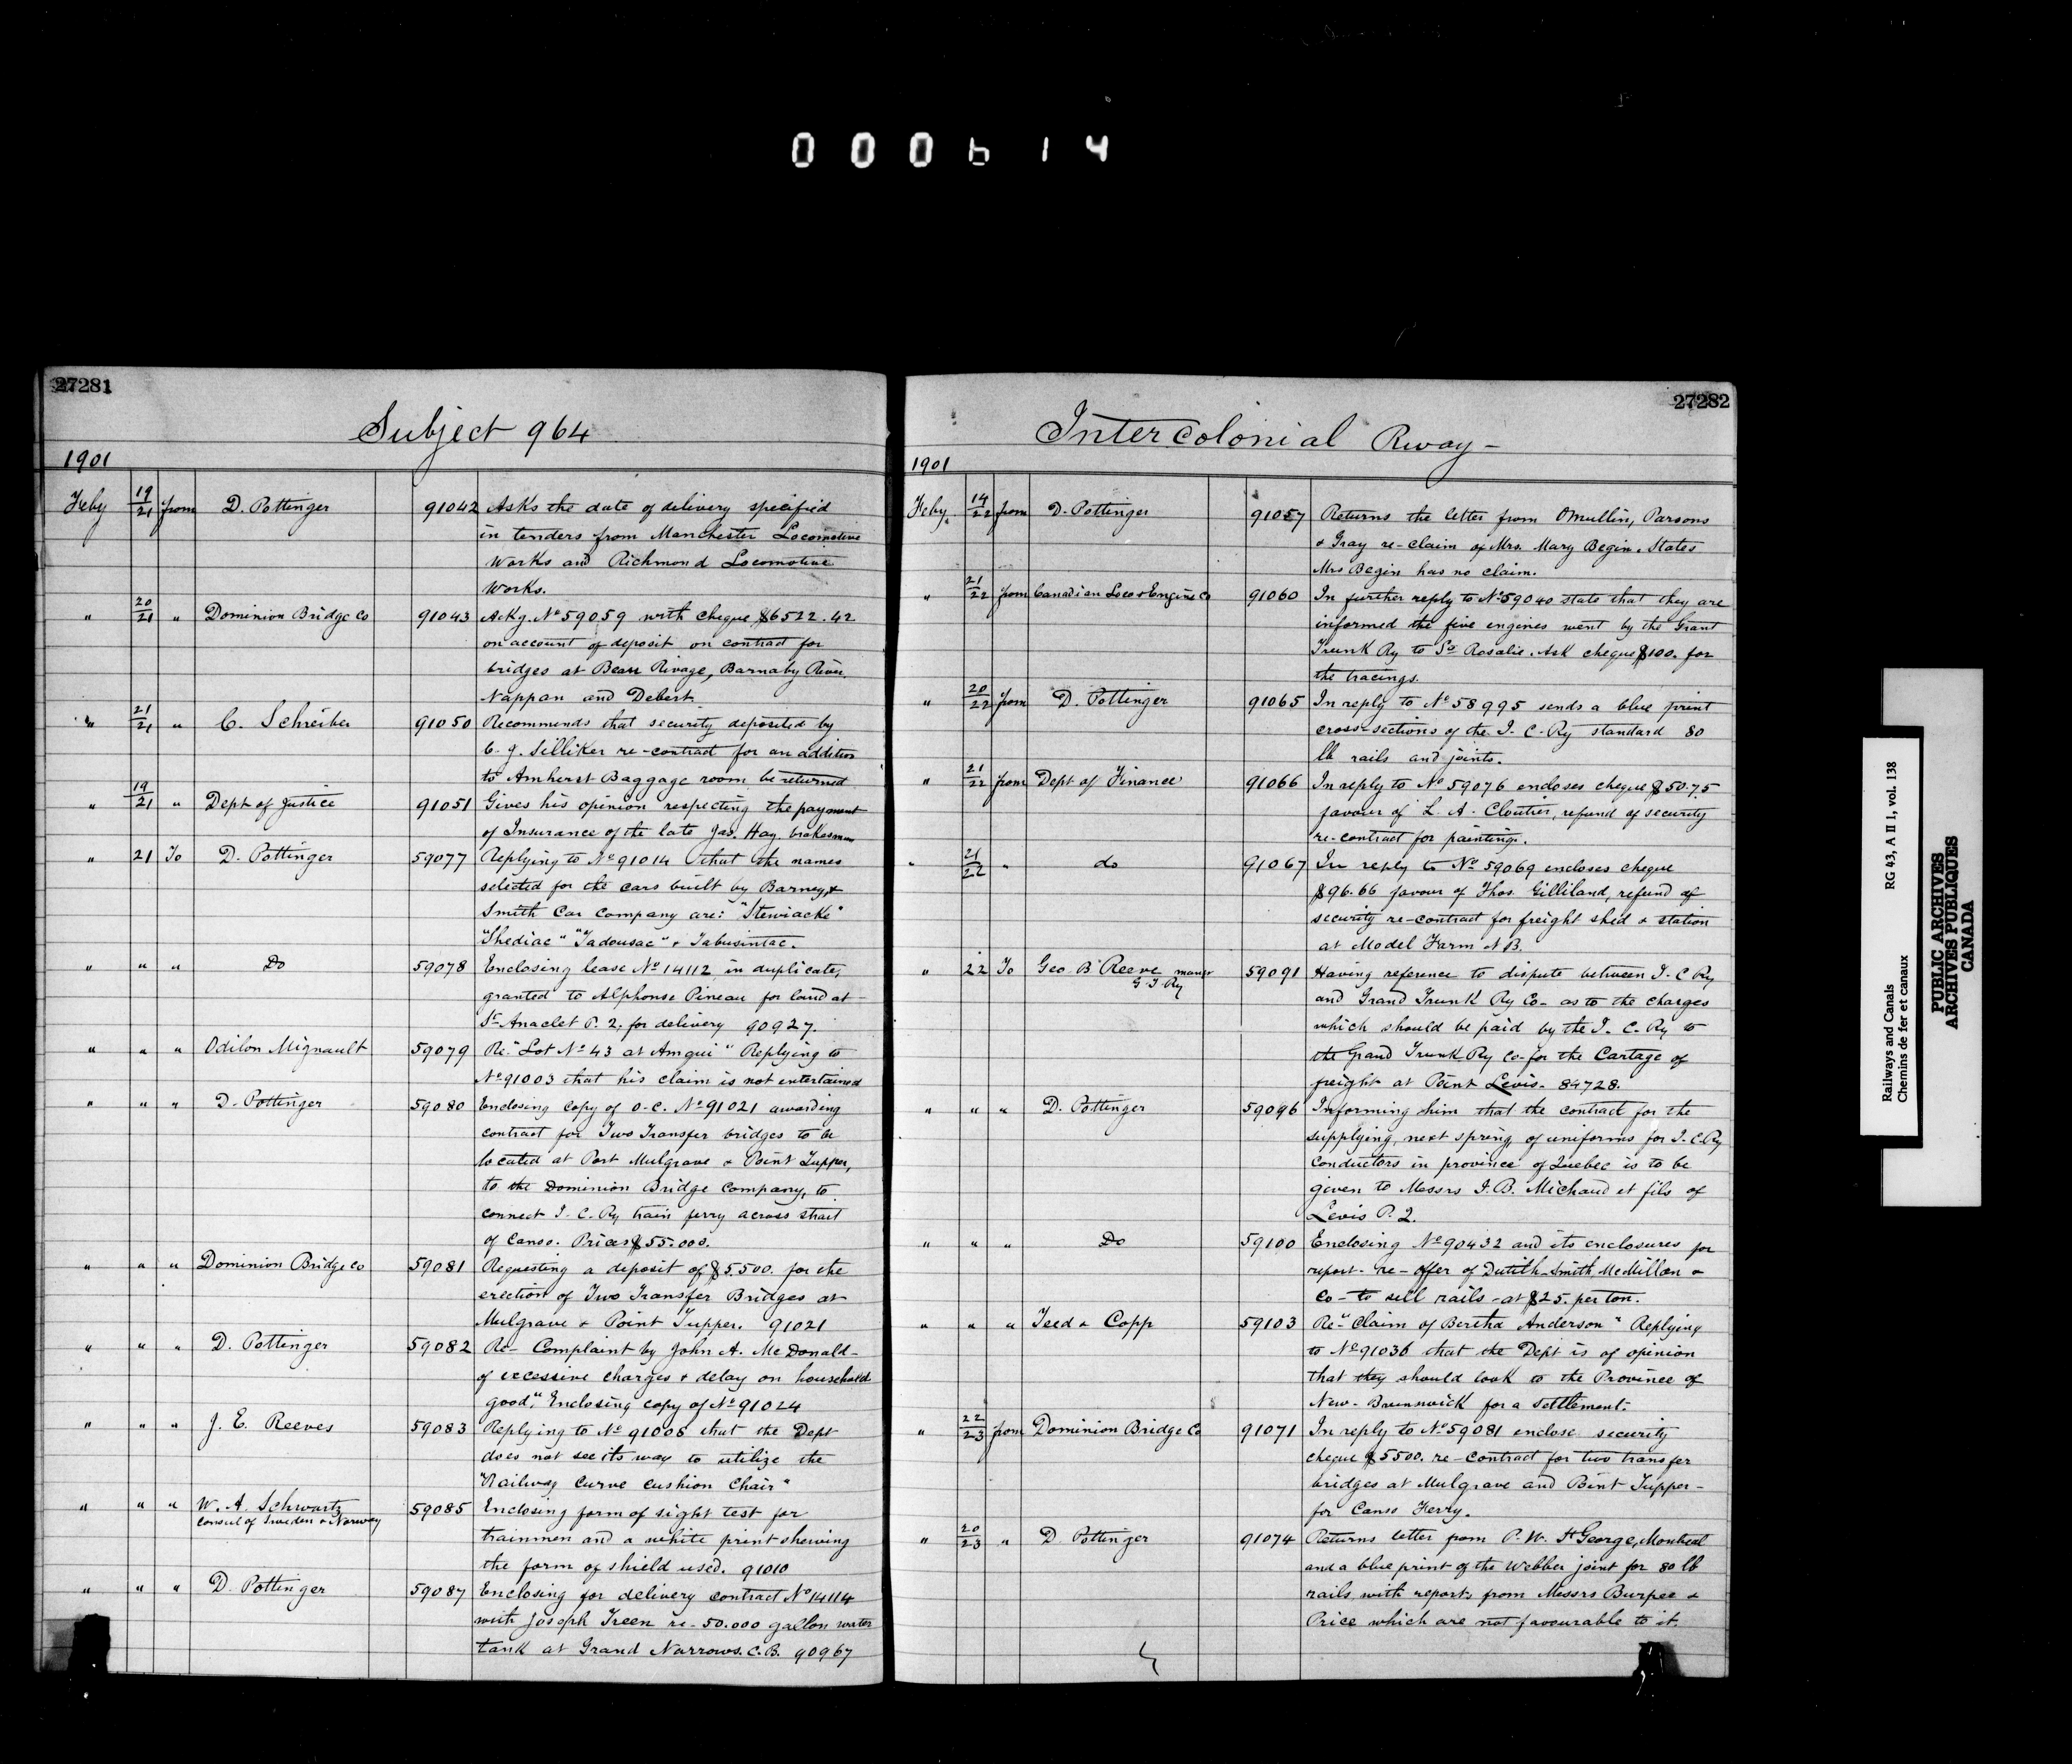 000614
27281
Subject 964
1901
Feby 19/21 from D. Pottinger 91042 Asks the date of delivery specified
in tenders from Manchester Locomotive
Works and Richmond Locomotive
Works.
" 20/21 " Dominion Bridge Co 91043 Ackg. No 59059 with cheque $6522.42
on account of deposit on contract for
bridges at Beau Rivage, Barnaby River
Nappan and Debert
" 21/21 " C. Schreiber 91050 Recommends that security deposited by
C. J. Silliker re-contract for an addition
to Amherst Baggage room be returned
" 19/21 " Dept of Justice 91051 Gives his opinion respecting the payment
of Insurance of the late Jas. Hay. brakesman
" 21 To D. Pottinger 59077 Replying to No 91014 that the names
selected for the cars built by Barney &
Smith Car Company are: "Stewiacke"
"Shediac" "Tadousac" & Tabusintac.
" " " Do 59078 Enclosing lease No 14112 in duplicate,
granted to Alphonse Pineau for land at
St Anaclet P. Q. for delivery 90927.
" " " Odilon Mignault 59079 Re. "Lot No 43 at Amqui" Replying to
No 91003 that his claim is not entertained
" " " D. Pottinger 59080 Enclosing copy of O.C. No 91021 awarding
contract for Two Transfer bridges to be
located at Port Mulgrave & Point Tupper,
to the Dominion Bridge Company, to
connect I. C. Ry train ferry across strait
of Canso. Price $55.000.
" " " Dominion Bridge Co 59081 Requesting a deposit of $5.500. for the
erection of Two Transfer Bridges at
Mulgrave & Point Tupper. 91021
" " " D. Pottinger 59082 Re- Complaint by John A. McDonald-
of excessive charges & delay on household
good". Enclosing copy of No 91024
" " " J. E. Reeves 59083 Replying to No 91006 that the Dept
does not see its way to utilize the
"Railway Curve Cushion Chair"
" " " W. A. Schwartz 59085 Enclosing form of sight test for
Consul of Sweden & Norway
trainmen and a white print shewing
the form of shield used. 91010
" " " D. Pottinger 59087 Enclosing for delivery contract No 14114
with Joseph Treen re-50.000 gallon water
tank at Grand Narrows. C.B. 90967
27282
Intercolonial Rway-
1901
Feby. 14/22 from D. Pottinger 91057 Returns the letter from OMullin, Parsons
& Gray re-claim of Mrs. Mary Begin. States
Mrs Begin has no claim.
" 21/22 from Canadian Loco & Engine Co 91060 In further reply to No 59040 state that they are
informed the five engines went by the Grant
Trunk Ry to Se Rosalie. Ask cheque $100. for
the tracings.
" 20/22 from D. Pottinger 91065 In reply to No 58995 sends a blue print
cross-sections of the I. C. Ry standard 80
lb rails and joints.
" 21/22 from Dept of Finance 91066 In reply to No 59076 encloses cheque $50.75
favour of L. A. Cloutier, refund of security
re-contract for painting.
" 21/22 " do 91067 In reply to No 59069 encloses cheque
$96.66 favour of Thos. Gilliland, refund of
security re-contract for freight shed & station
at Model Farm N.B.
" 22 To Geo. B Reeve manr 59091 Having reference to dispute between I. C Ry
G. T. Ry
and Grand Trunk Ry Co- as to the charges
which should be paid by the I. C. Ry to
the Grand Trunk Ry Co-for the Cartage of
freight at Point Levis- 84728.
" " " D. Pottinger 59096 Informing him that the contract for the
supplying, next spring, of uniforms for I. C. Ry
conductors in province of Quebec is to be
given to Messrs J. B. Michaud et fils of
Levis P. Q.
" " " Do 59100 Enclosing No 90432 and its enclosures for
report- re-offer of Dutilh-Smith, McMillan &
Co-to sell rails-at $25. per ton.
" " " Teed & Copp 59103 Re-"Claim of Bertha Anderson" Replying
to No 91036 that the Dept is of opinion
that they should look to the Province of
New-Brunswick for a settlement.
" 22/23 from Dominion Bridge Co 91071 In reply to No 59081 enclose security
cheque $5500. re-contract for two transfer
bridges at Mulgrave and Point Tupper-
for Canso Ferry.
" 20/23 " D. Pottinger 91074 Returns letter from P. W. St George, Montreal
and a blue print of the Webber joint for 80 lb
rails with reports from Messrs Burpee &
Price which are not favourable to it.
Railways and Canals RG 43, A II 1, vol. 138
Chemins de fer et canaux
PUBLIC ARCHIVES
ARCHIVES PUBLIQUES
CANADA